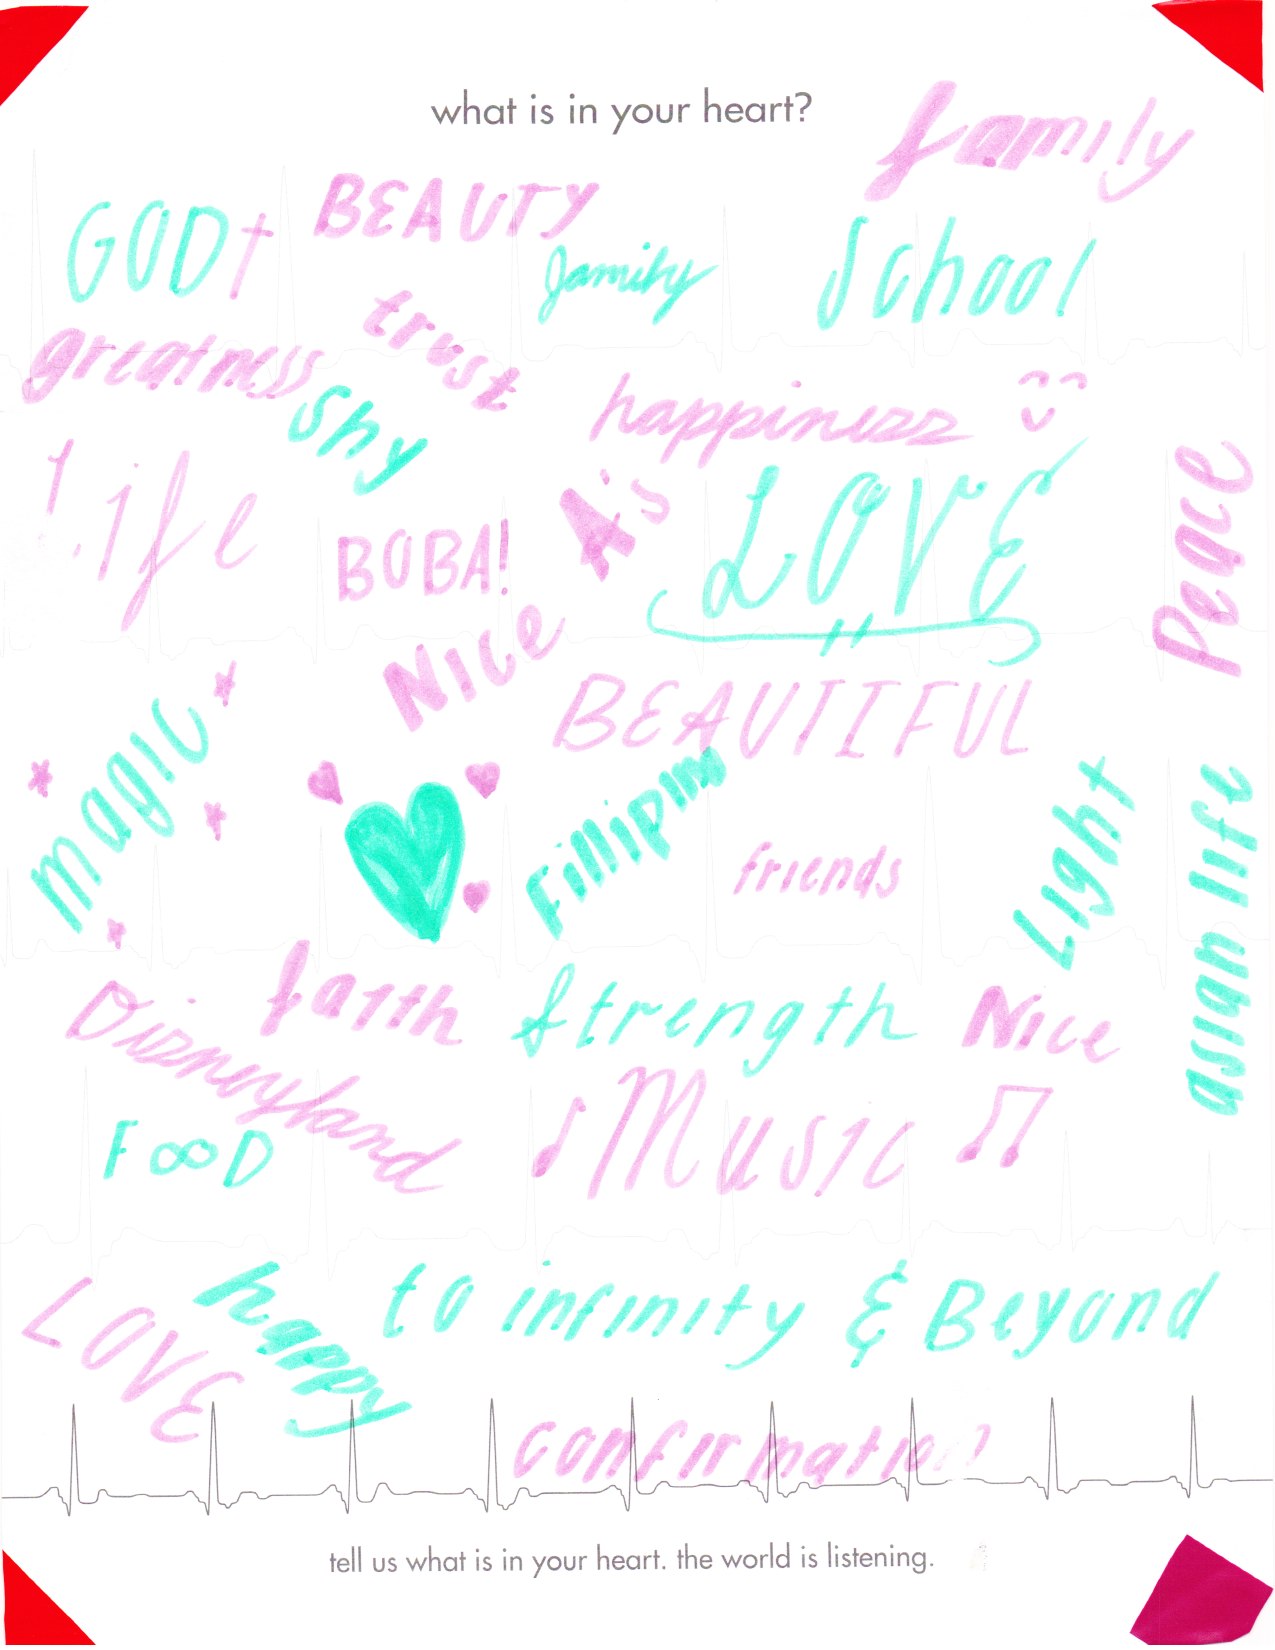 what is in your heart?
family
BEAUTY
GOD†
family
School
trust
greatness
shy
happiness
Life
A's
LOVE
Peace
BOBA!
Nice
BEAUTIFUL
magic
Fillipino
friends
Light
asian life
faith
Strength
Nice
Disneyland
Music
FOOD
to infinity & Beyond
happy
LOVE
confirmation
tell us what is in your heart. the world is listening.